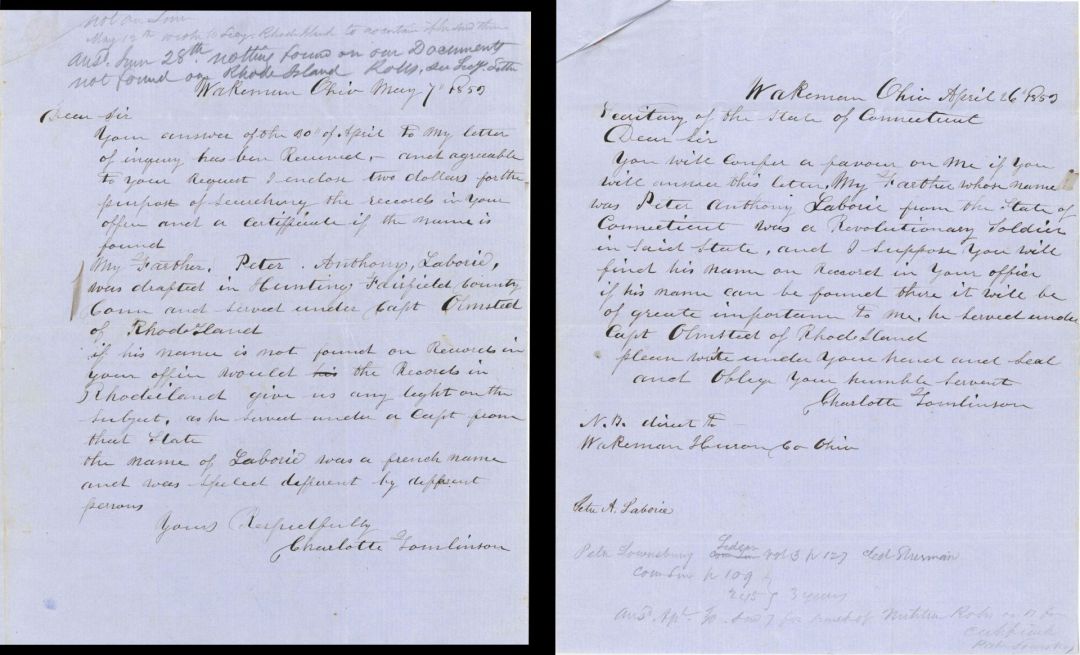 not on
May 12th wrote to Secy. Rhode Island to
Ansd. June 28th nothing found on our Documents
not found on Rhode Island Rolls, see Secy.
Wakeman Ohio May 7th 1852
Dear Sir
Your answer of the 30th of April to My letter
of inquiry has ben Received,- and agreeable
to Your Request I enclose two dollars for the
purpose of searching the records in Your
office and a Certificate if the name is
found
My Farther, Peter. Anthony, Laborie,
was drafted in Hunting Fairfield County
Conn and served under Capt Olmsted
of Rhode Iland
if his name is not found on Records in
Your office would his the Records in
Rhodeiland give us any light on the
Subject, as he served under a Capt from
that State
the name of Laborie was a french name
and was Speled different by different
persons
Yours Respectfully
Charlotte Tomlinson
Wakeman Ohio April 26th 1852
Secritary of the State of Connecticut
Dear Sir
You will Confer a favour on Me if You
will answer this letter, My Farther whose name
was Peter Anthony Laborie from the State of
Connecticut was a Revolutionary Soldier
in Said State, and I Suppose You will
find his name on Record in Your office
if his name can be found there it will be
of greate important to Me, he served under
Capt Olmsted of Rhode Iland
please write under Your hand and Seal
and Oblige Your humble Servent
Charlotte Tomlinson
N.B. direct to
Wakeman Huron Co Ohio
Peter A. Laborie
Peter Lownsbury vol 3 p 127 Col Sherman
p 109
245 3 years
Ansd Apl. 30. for of Militia Rolls